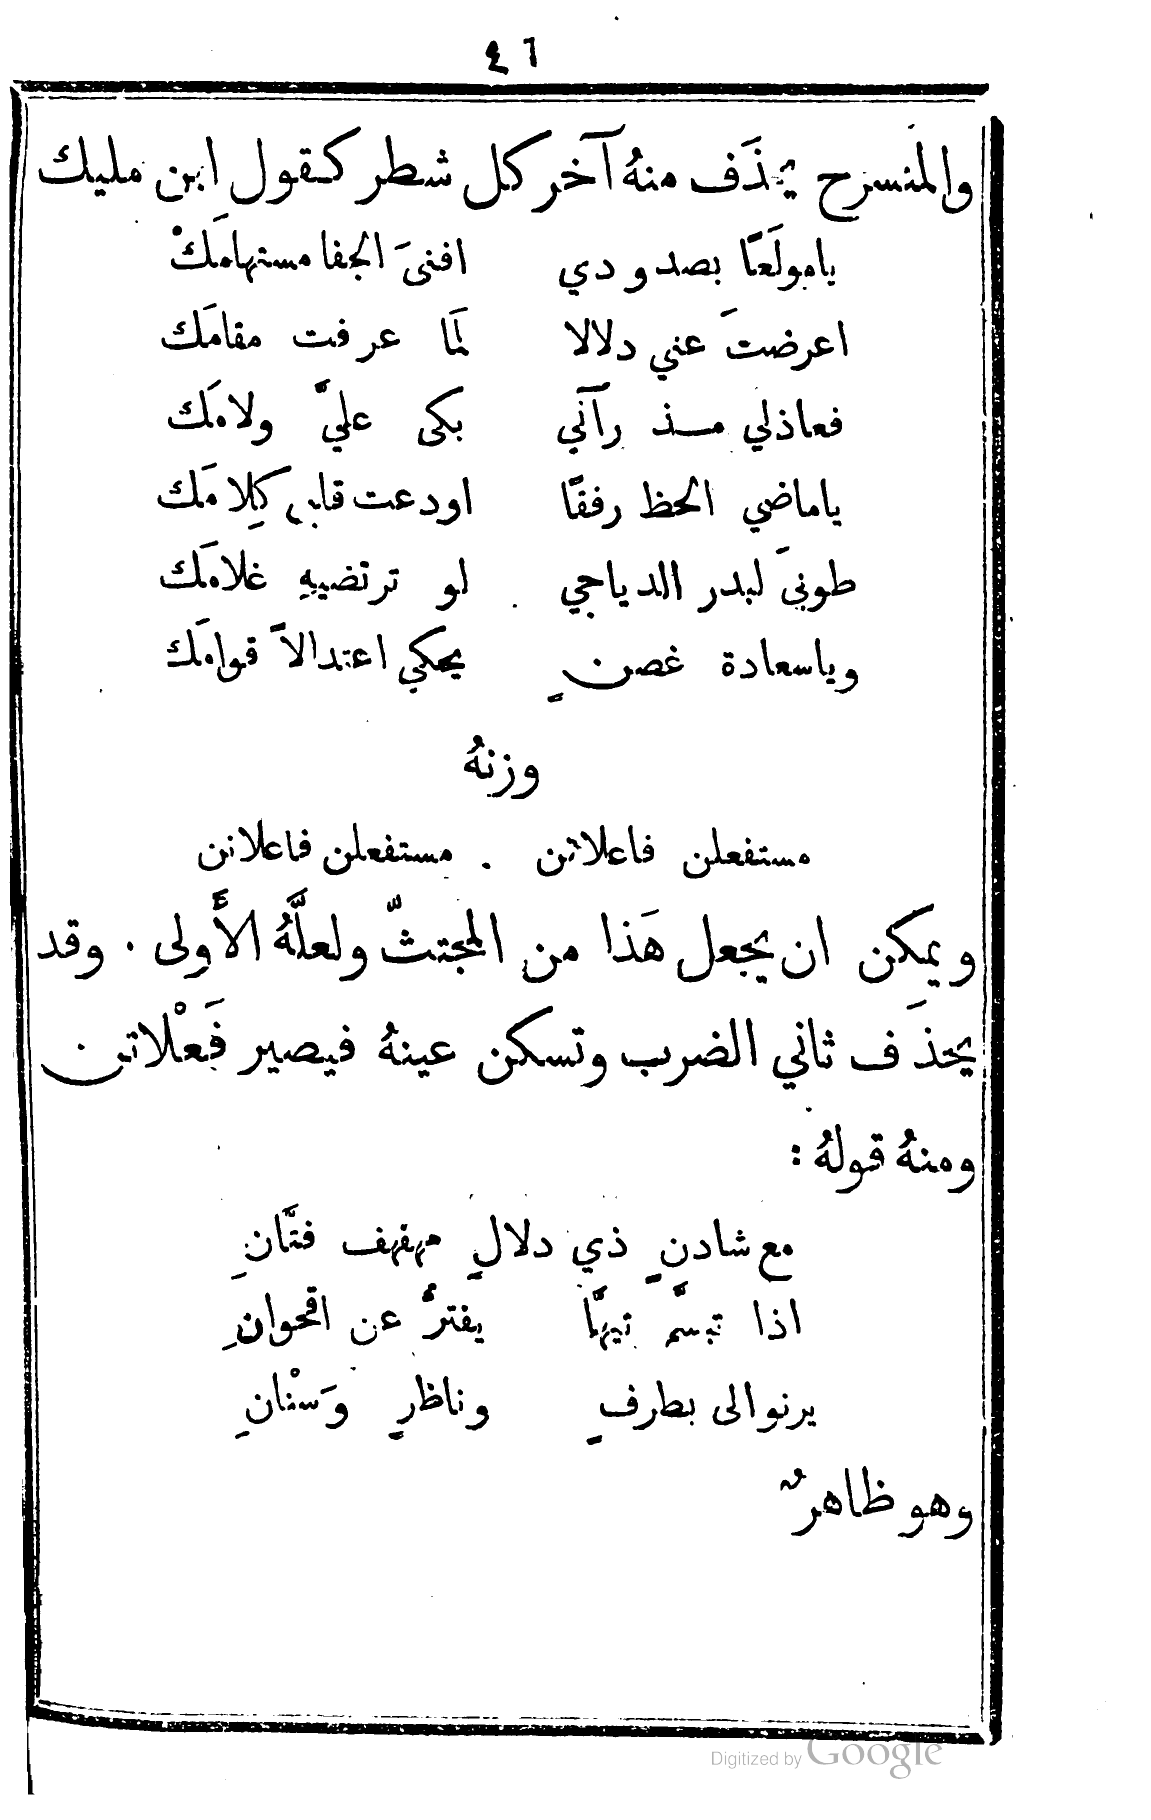 ٤٦
والمنسرح يحذَف منهُ آخر كل شطر كقول ابن مليك
يامولَعًا بصدودي افنىَ الجفا مستهامَكْ
اعرضتَ عني دلالا لَمَّا عرفت مقامَك
فعاذلي مذ رآني بكى عليَّ ولامَك
ياماضي الحظ رفقًا اودعت قلبي كلامَك
طوبىَ لبدر الدياجي لو ترتضيهِ غلامَك
وياسعادة غصنٍ يحكي اعتدالاً قوامَك
وزنهُ
مستفعلن فاعلاتن . مستفعلن فاعلاتن
ويمكن ان يجعل هَذا من المجتثّ ولعلَّهُ الأَولى . وقد
يحذَف ثاني الضرب وتسكن عينهُ فيصير فَعْلاتن
ومنهُ قولهُ :
مع شادنٍ ذي دلالٍ مهفهف فتَّانِ
اذا تبسَّم تيهًا يفترُّ عن اقحوانِ
يرنوالى بطرفٍ وناظرٍ وَسْنانِ
وهو ظاهرٌ
Digitized by Google